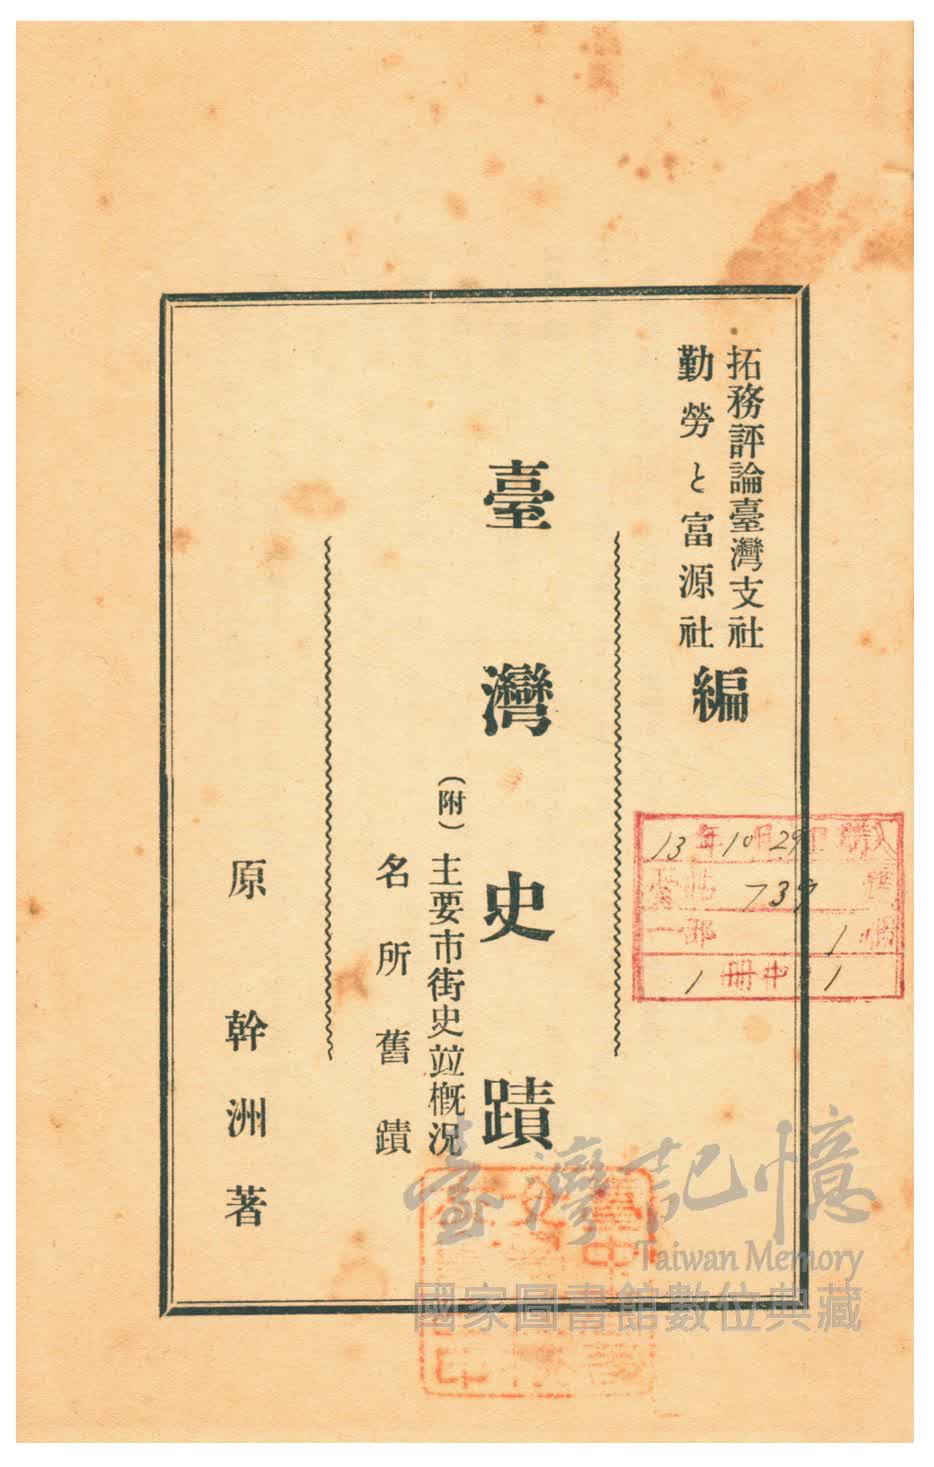 拓務評論臺灣支社
勤勞と富源社
編
臺灣史蹟
(附)
主要市街史竝概況
名所舊蹟
原幹洲著
13年10月29日購入
739
一部 1
1 冊中 1
臺灣記憶
Taiwan Memory
國家圖書館數位典藏